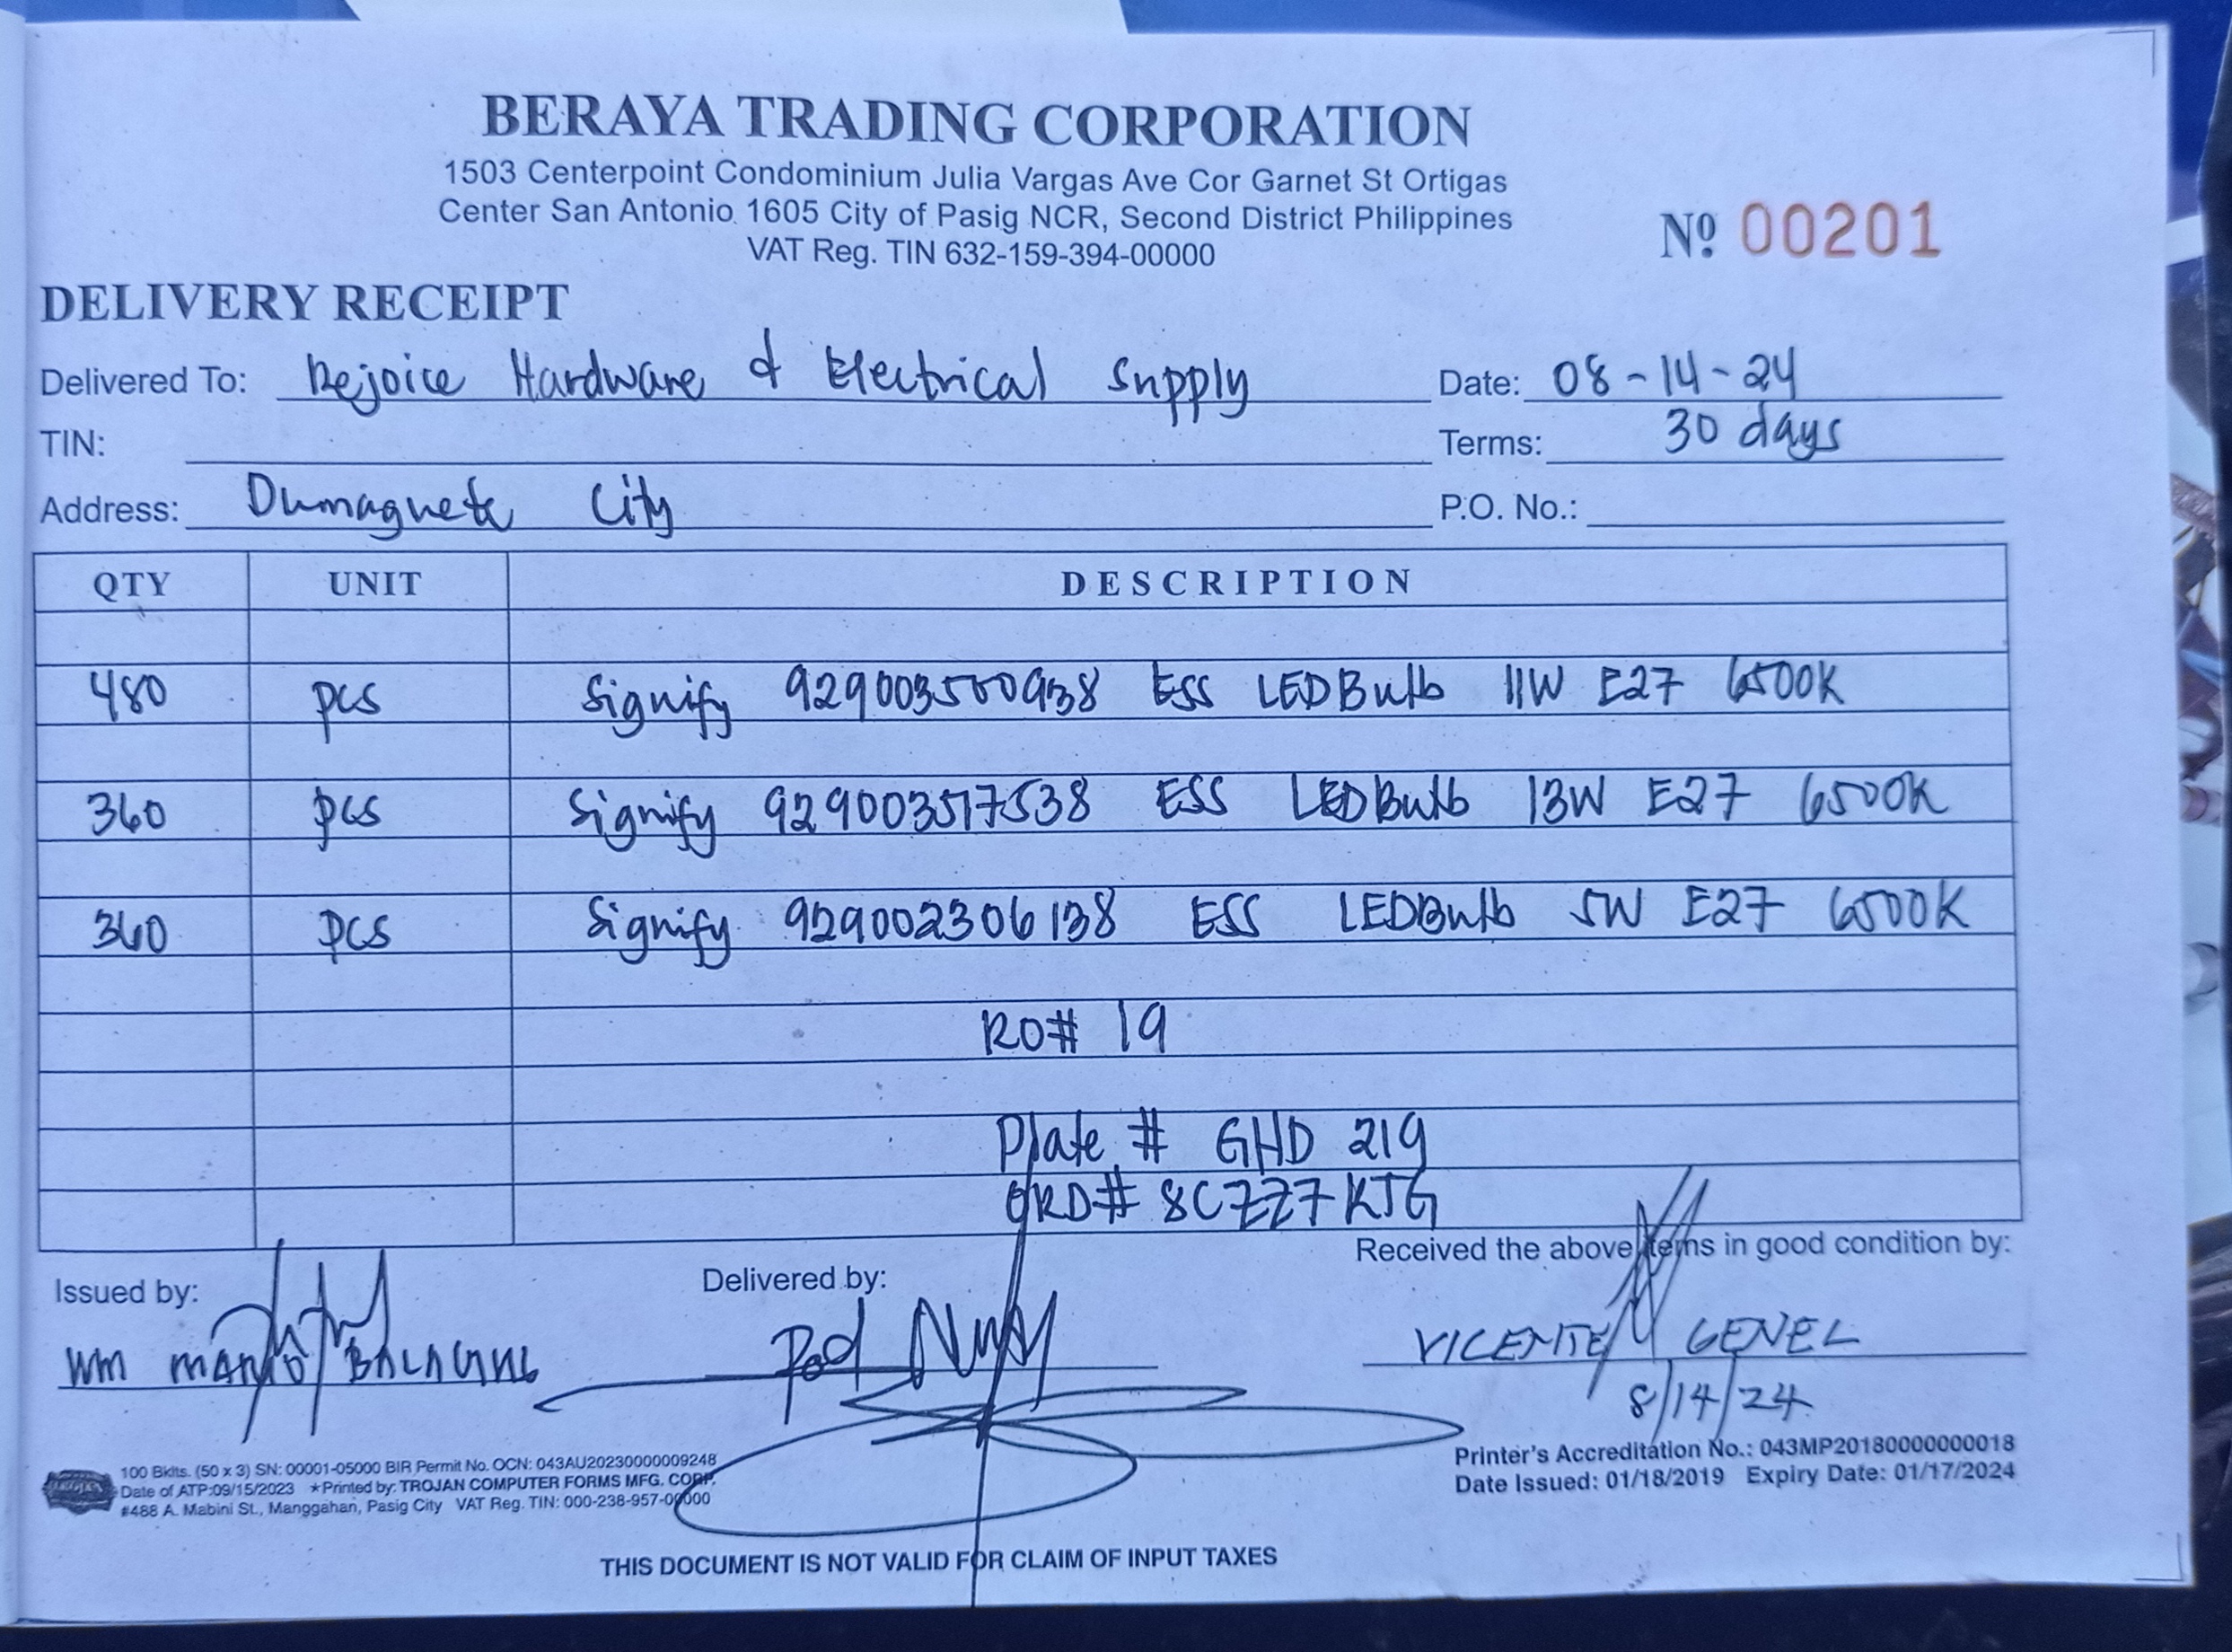 BERAYA TRADING CORPORATION
1503 Centerpoint Condominium Julia Vargas Ave Cor Garnet St Ortigas
Center San Antonio 1605 City of Pasig NCR, Second District Philippines
VAT Reg. TIN 632-159-394-00000
Nº 00201
DELIVERY RECEIPT
Delivered To: Rejoice Hardware & Electrical Supply
Date: 08-14-24
TIN:
Terms: 30 days
Address: Dumaguete City
P.O. No.:
QTY UNIT DESCRIPTION
480 pcs Signify 929003500938 ESS LEDBulb 11W E27 6500K
360 pcs Signify 929003517538 ESS LEDBulb 13W E27 6500K
360 pcs Signify 929002306138 ESS LEDBulb 5W E27 6500K
RO# 19
Plate # GHD 219
ORD# 8CZZ7KJG
Issued by:
Delivered by:
Received the above items in good condition by:
WM
VICENTE GENEL
8/14/24
100 Bklts. (50 x 3) SN: 00001-05000 BIR Permit No. OCN: 043AU20230000009248
Date of ATP:09/15/2023 ★Printed by: TROJAN COMPUTER FORMS MFG. CORP.
#488 A. Mabini St., Manggahan, Pasig City VAT Reg. TIN: 000-238-957-00000
Printer's Accreditation No.: 043MP20180000000018
Date Issued: 01/18/2019 Expiry Date: 01/17/2024
THIS DOCUMENT IS NOT VALID FOR CLAIM OF INPUT TAXES